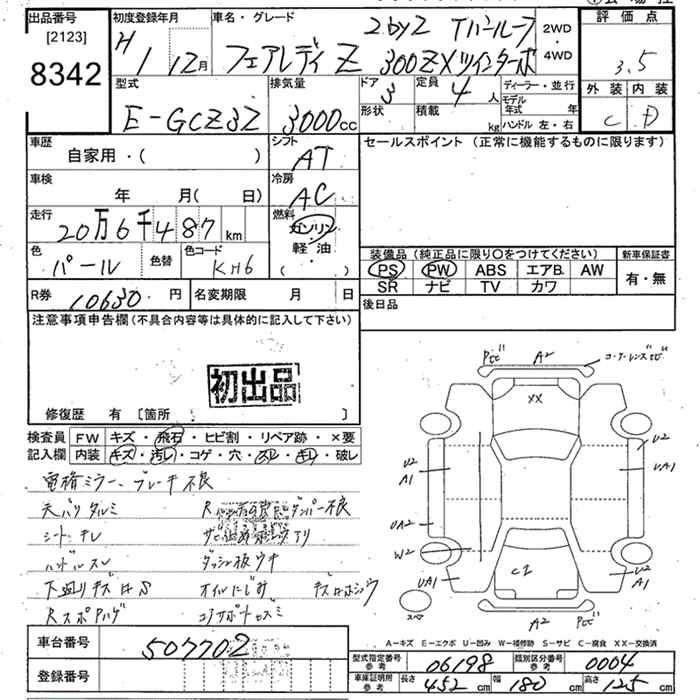 出品番号 [2123] 8342
初度登録年月 H1 12月
車名・グレード フェアレディZ 2by2 Tバールーフ 300ZXツインターボ
2WD・4WD
評価点 3.5
外装 内装
C D
型式 E-GCZ32
排気量 3000cc
ドア 3 定員 4人
形状 積載 kg
ディーラー・並行
モデル年式 年
ハンドル 左・右
車歴 自家用・( )
シフト AT
セールスポイント (正常に機能するものに限ります)
車検 年 月( 日)
冷房 AC
走行 20万6千487km
燃料 ガソリン 軽・油 ( )
色 パール 色替 色コード KH6
装備品 (純正品に限り○をつけてください) 新車保証書
PS PW ABS エアB. AW 有・無
SR ナビ TV カワ
R券 10630円 名変期限 月 日
後日品
注意事項申告欄(不具合内容等は具体的に記入して下さい)
初出品
修復歴 有 [箇所 ]
検査員 FW キズ・飛石・ヒビ割・リペア跡・×要
記入欄 内装 キズ・汚レ・コゲ・穴・スレ・キレ・破レ
電格ミラー、ブレーキ不良
天バリタルミ
シートキレ
ハンドルスレ ダッシュ板ウキ
下廻りキズ
オイルにじみ
A2
XX
U2
A1
U2
UA1
UA2
W2
UA1
C1
U2
A1
スペア
A2
A-キズ E-エクボ U-凹み W-補修跡 S-サビ C-腐食 XX-交換済
車台番号 507702
登録番号
型式指定番号 参考 06198 類別区分番号 参考 0004
車庫証明用 参考 長さ 452cm 幅 180cm 高さ 125cm